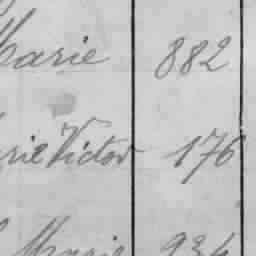 Marie 882
rie Victor 176
Marie 936